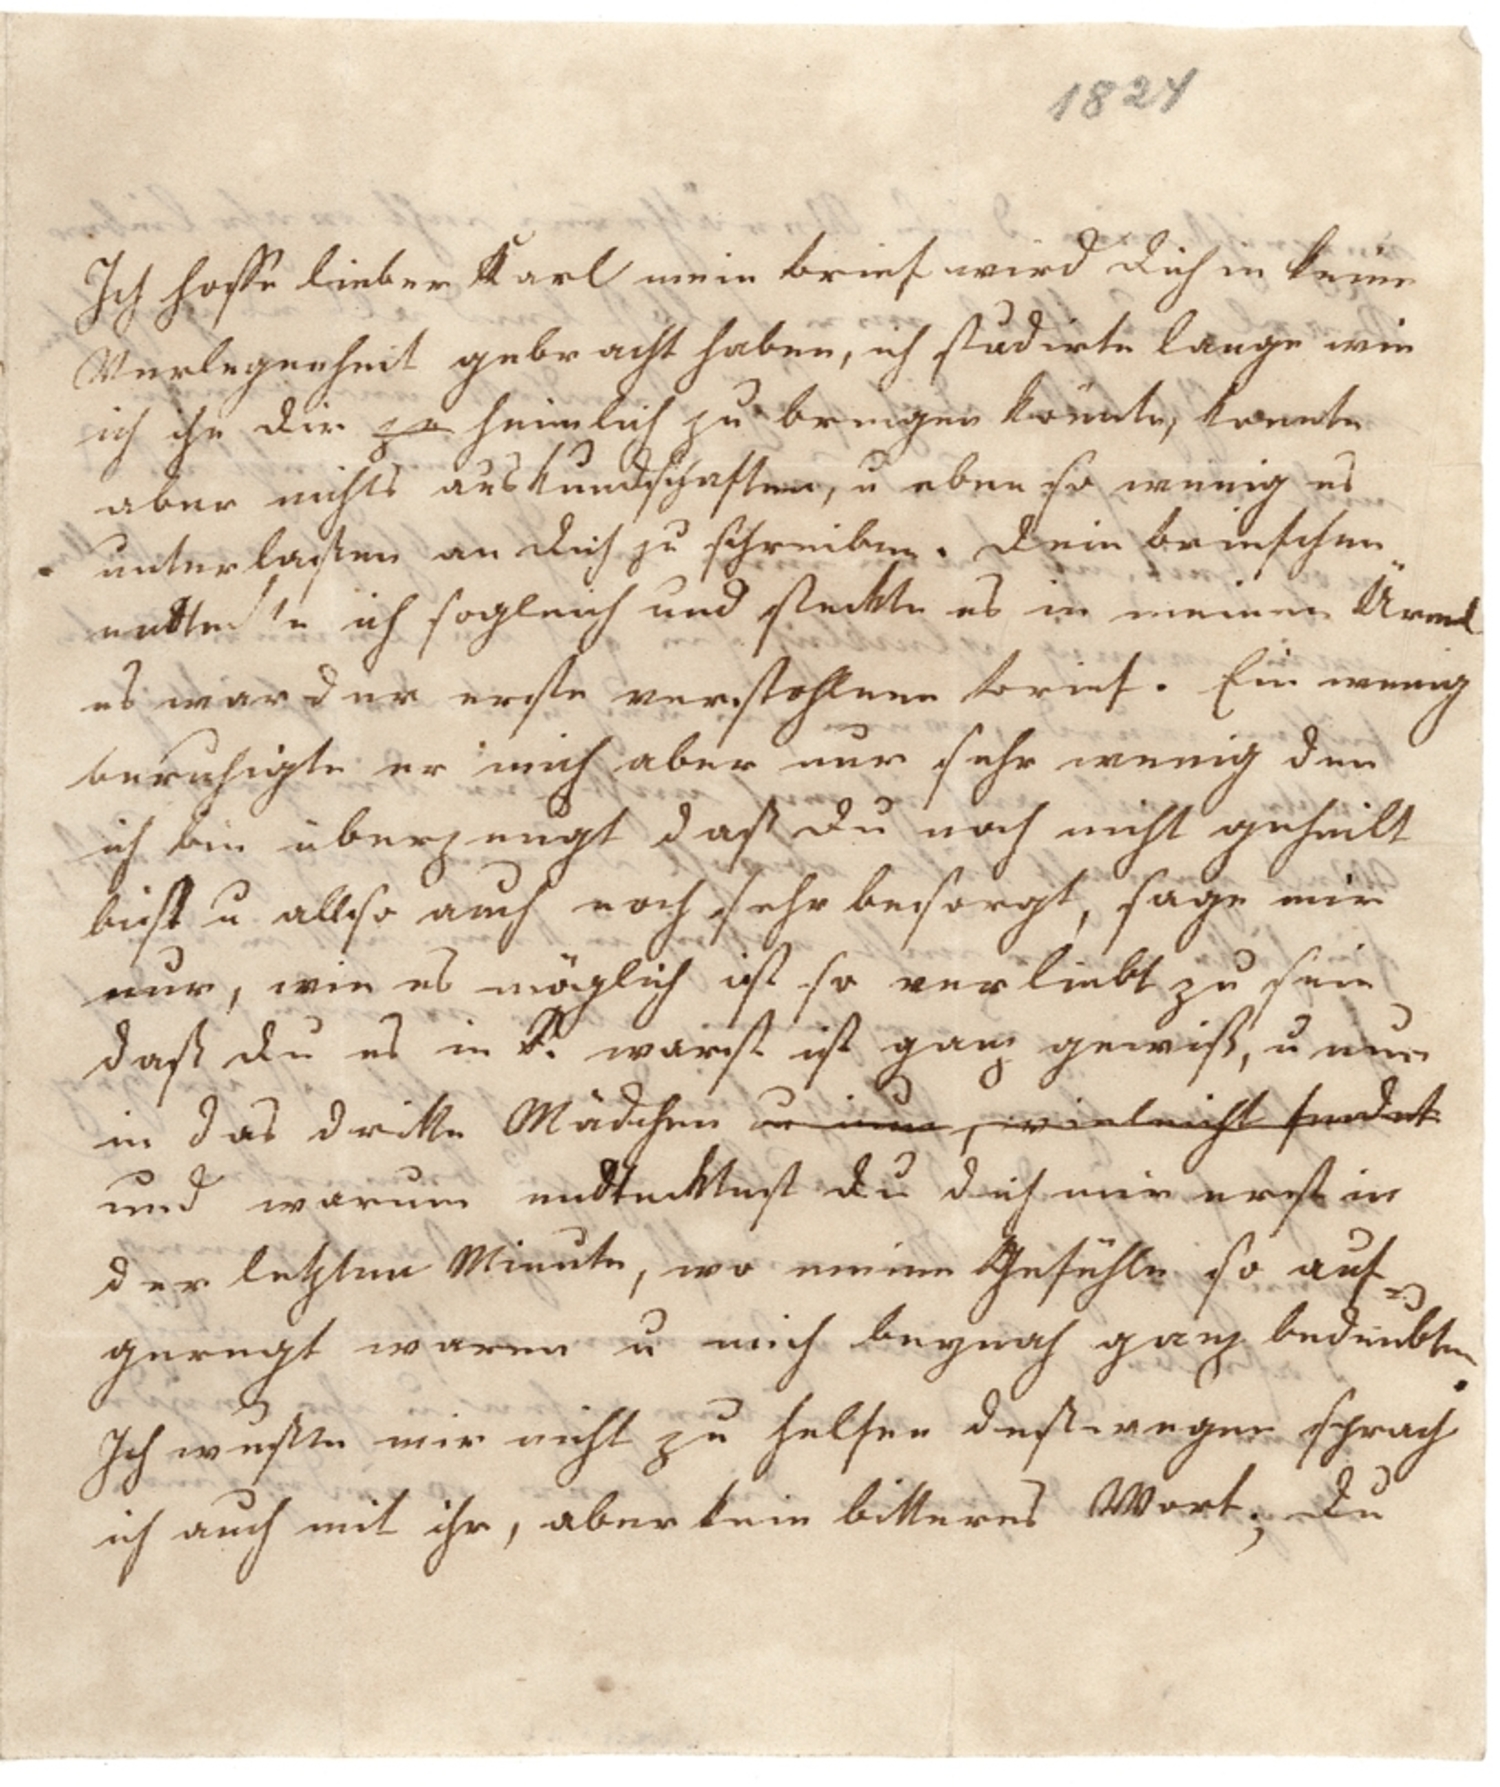 1824
Ich hoffe lieber Karl mein brief wird dich in keine
Verlegenheit gebracht haben, ich studirte lange wie
ich ihn dir zu heimlich zu bringen könnte, konnte
aber nichts auskundschaften, u eben so wenig es
unterlaßen an dich zu schreiben. dein briefchen
endteckte ich sogleich und steckte es in meinen Ärmel
es war der erste verstohlene brief. Ein wenig
beruhigte er mich aber nur sehr wenig den
ich bin überzeugt daß du noch nicht geheilt
bist u allso auch noch sehr besorgt, sage mir
nur, wie es möglich ist so verliebt zu sein
daß du es in K. warst ist ganz gewiß, u nun
in das dritte Mädchen vieleicht
und warum endtecktest du dich mir erst in
der letzten Minute, wo meine Gefühle so auf-
geregt waren u mich beynah ganz bedeubten.
Ich wußte mir nicht zu helfen deßwegen sprach
ich auch mit ihr, aber kein bitteres Wort; du